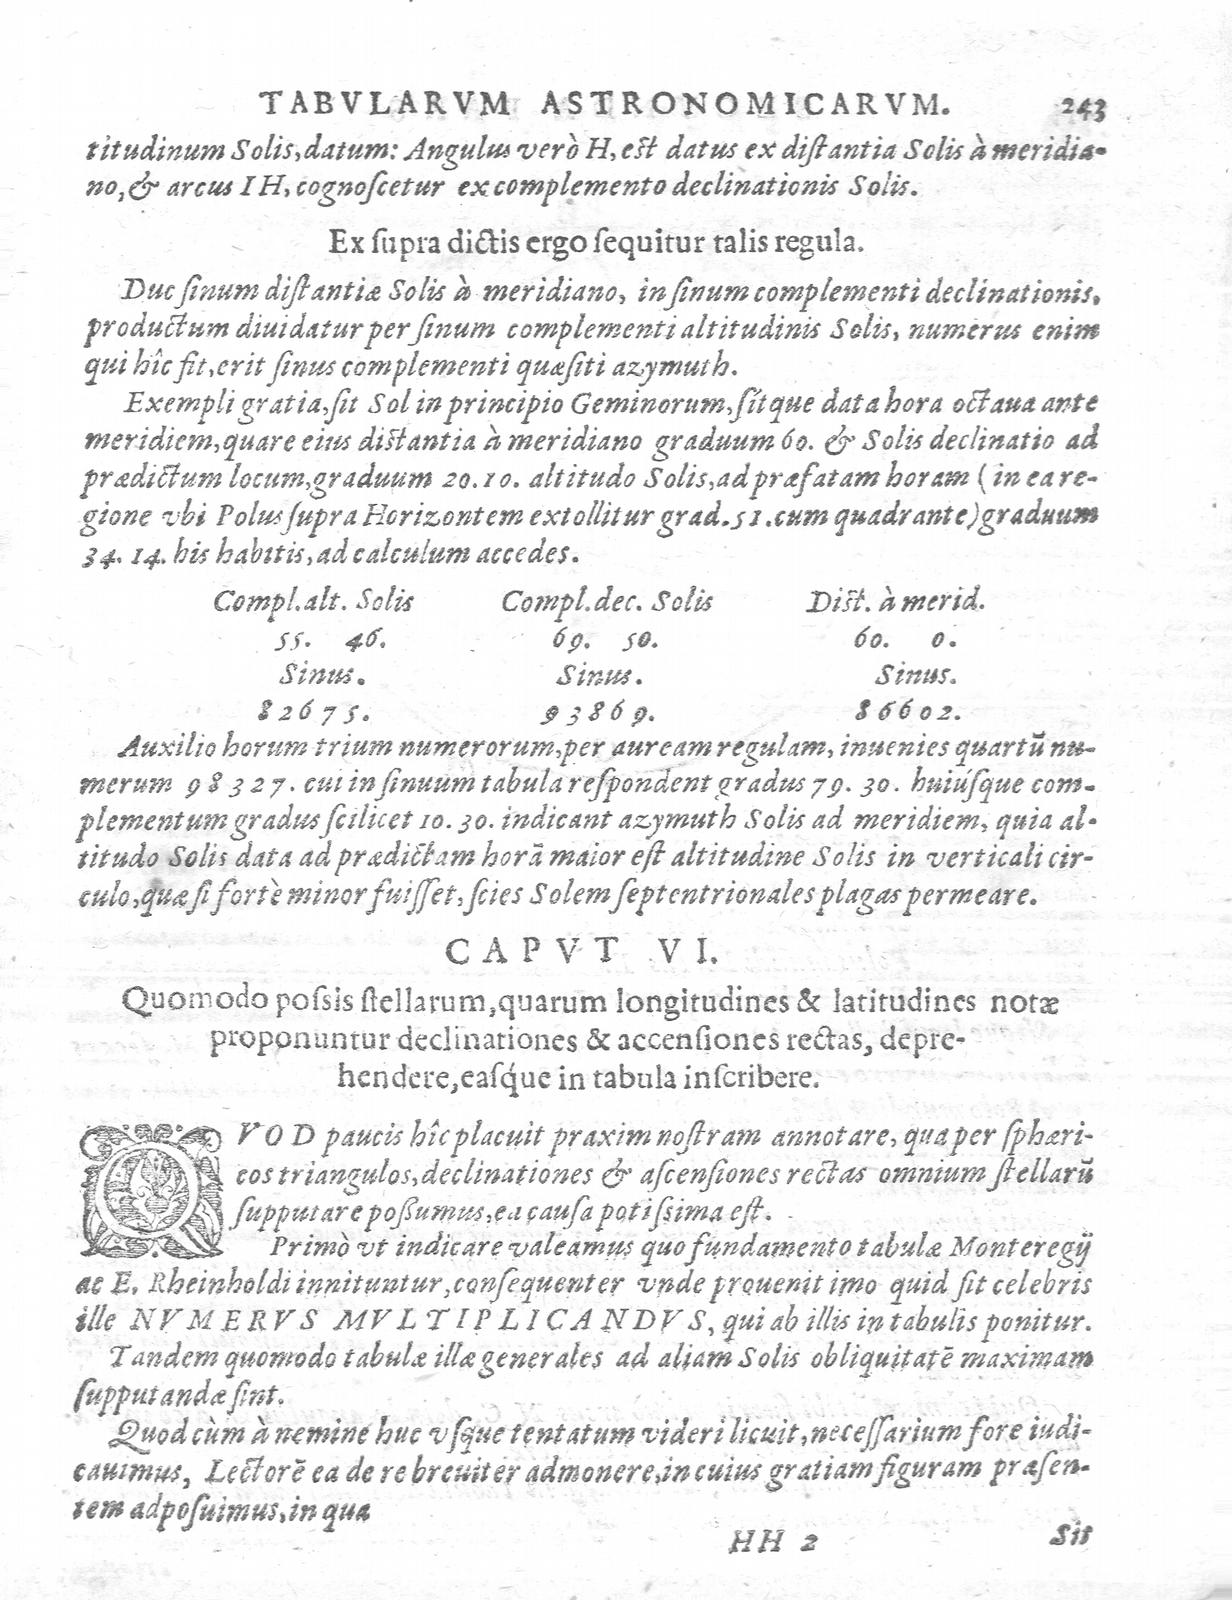 TABVLARVM ASTRONOMICARVM. 243
titudinum Solis, datum: Angulus verò H, est datus ex distantia Solis à meridia-
no, & arcus I H, cognoscetur ex complemento declinationis Solis.
Ex supra dictis ergo sequitur talis regula.
Duc sinum distantiæ Solis à meridiano, in sinum complementi declinationis,
productum diuidatur per sinum complementi altitudinis Solis, numerus enim
qui hîc fit, erit sinus complementi quæsiti azymuth.
Exempli gratia, sit Sol in principio Geminorum, sítque data hora octaua ante
meridiem, quare eius distantia à meridiano graduum 60. & Solis declinatio ad
prædictum locum, graduum 20. 10. altitudo Solis, ad præfatam horam (in ea re-
gione vbi Polus supra Horizontem extollitur grad. 51. cum quadrante) graduum
34. 14. his habitis, ad calculum accedes.
Compl. alt. Solis Compl. dec. Solis Dist. à merid.
55. 46. 69. 50. 60. 0.
Sinus. Sinus. Sinus.
82675. 93869. 86602.
Auxilio horum trium numerorum, per auream regulam, inuenies quartū nu-
merum 98327. cui in sinuum tabula respondent gradus 79. 30. huiúsque com-
plementum gradus scilicet 10. 30. indicant azymuth Solis ad meridiem, quia al-
titudo Solis data ad prædictam horā maior est altitudine Solis in verticali cir-
culo, quæ si fortè minor fuisset, scies Solem septentrionales plagas permeare.
CAPVT VI.
Quomodo possis stellarum, quarum longitudines & latitudines notæ
proponuntur declinationes & accensiones rectas, depre-
hendere, easq́ue in tabula inscribere.
QVOD paucis hîc placuit praxim nostram annotare, qua per sphæri-
cos triangulos, declinationes & ascensiones rectas omnium stellarū
supputare possumus, ea causa potissima est.
Primò vt indicare valeamus quo fundamento tabulæ Monteregij
ac E. Rheinholdi innituntur, consequenter vnde prouenit imo quid sit celebris
ille NVMERVS MVLTIPLICANDVS, qui ab illis in tabulis ponitur.
Tandem quomodo tabulæ illæ generales ad aliam Solis obliquitatē maximam
supputandæ sint.
Quod cùm à nemine huc vsque tentatum videri licuit, necessarium fore iudi-
cauimus, Lectorē ea de re breuiter admonere, in cuius gratiam figuram præsen-
tem adposuimus, in qua
HH 2 Sit